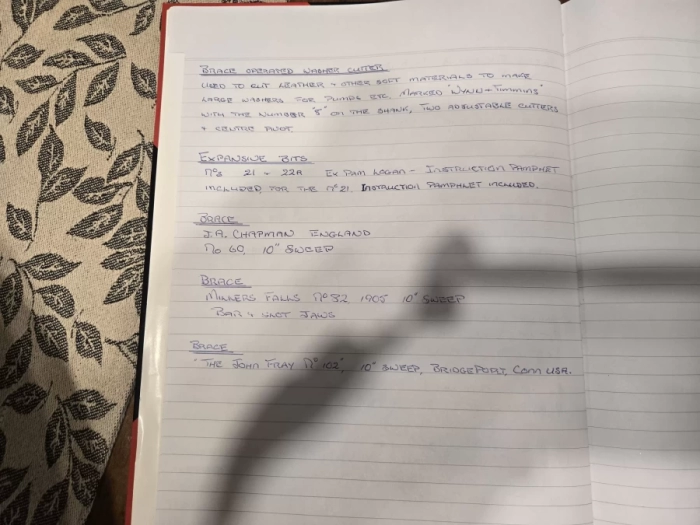 BRACE OPERATED WASHER CUTTER
USED TO CUT LEATHER + OTHER SOFT MATERIALS TO MAKE
LARGE WASHERS FOR PUMPS ETC. MARKED "WYNN + TIMMINS"
WITH THE NUMBER "8" ON THE SHANK, TWO ADJUSTABLE CUTTERS
+ CENTRE PIVOT
EXPANSIVE BITS
Nos 21 + 22A EX PAM LOGAN - INSTRUCTION PAMPHET
INCLUDED FOR THE No 21. INSTRUCTION PAMPHLET INCLUDED.
BRACE
J.A. CHAPMAN ENGLAND
No 60, 10" SWEEP
BRACE
MILLERS FALLS No 32 1905 10" SWEEP
BAR + JAWS
BRACE
"THE JOHN FRAY No 102", 10" SWEEP, BRIDGEPORT, CONN USA.